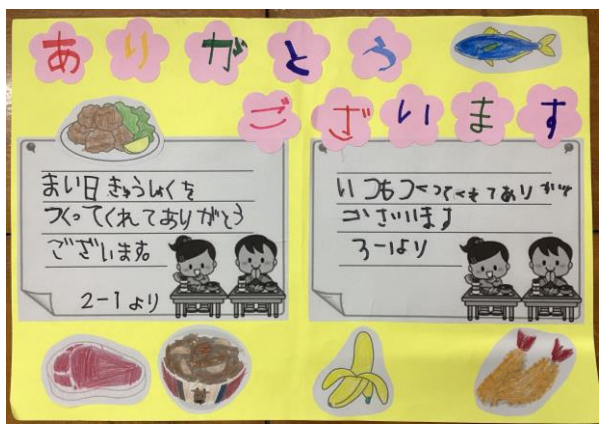 ありがとう
ございます
まい日きゅうしょくを
つくってくれてありがとう
ございます。
2-1より
いつもつくってくれてありがとう
ございます
3-1より